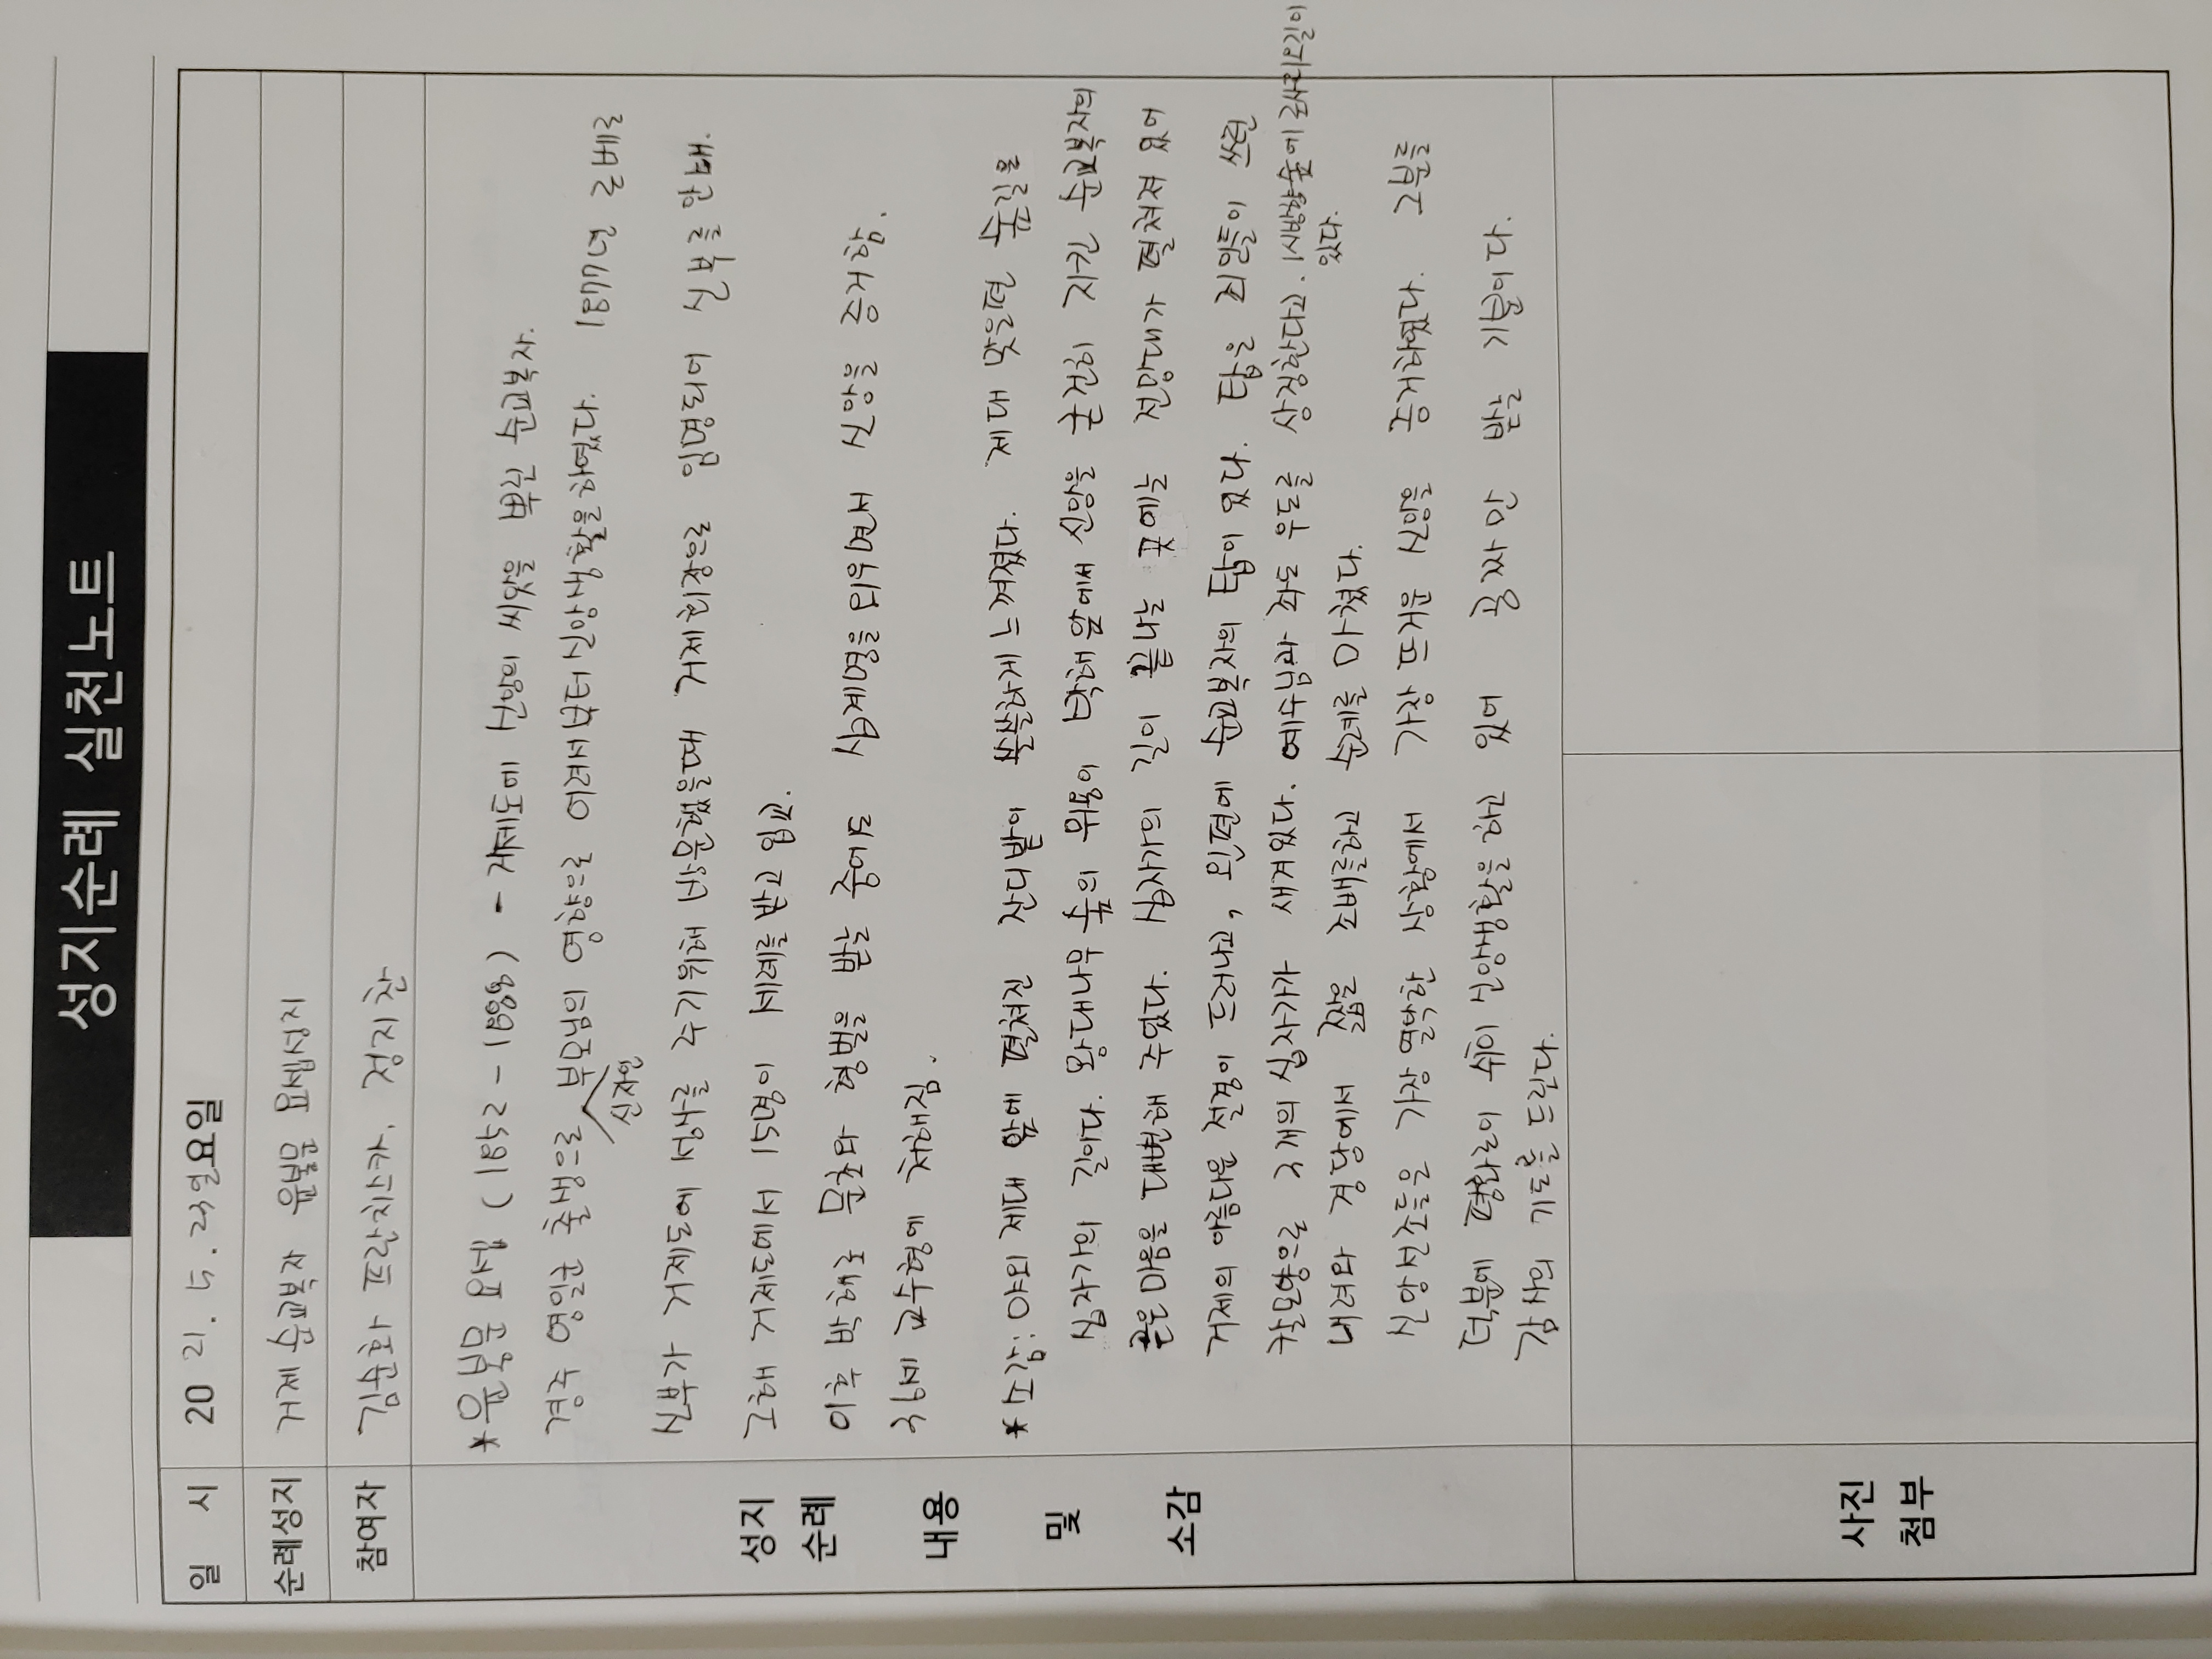 성지순례 실천노트
일 시 20 21. 5. 23일요일
순례성지 거제 순교복자 윤봉문 요셉성지
참여자 김순화 프란치스카, 정지찬
성지 순례 내용 및 소감
*윤봉문 요셉 (1852-1888) - 거제도에 신앙의 씨앗을 뿌린 순교복자.
경주 영일군 출생으로 신자인 부모님의 영향으로 어려서부터 신앙생활을 하였다. 1877년 르베르
신부가 거제도에 성사를 주기위해 방문했을때 거제회장으로 임명되어 신부를 안내.
그해 거제도에서 15명이 세례를 받고 입교.
이후 박해로 문초와 형벌을 받는 중에도 십계명을 외우면서 신앙을 증거함.
36세 교수형에 처해짐.
*소감: 야외 제대 앞에 펼쳐진 잔디밭이 쓸쓸하게 느껴졌다. 제대 맞은편 숲길은
십자가의 길이다. 왕대나무 숲의 위용이 박해 앞에서 신앙을 굳건히 지킨 순교복자의
곧은 마음을 대변해 주었다. 십자가의 길이 끝나는 곳에는 전망대가 펼쳐져 있어
거제의 아름다운 절경이 드러나고, 왼편에 순교복자의 탑이 있다. 탑은 죄인들이 쓰던
칼모양으로 3개의 십자가가 새겨있다. 예수님과 좌도 우도를 상징한다고. 1시방향숲에 로사리오길이
있다.
내려와 경당에서 짧은 조배를하고 순례를 마쳤다.
신앙선조들은 가장 열악한 상황에서 가장 뜨거운 신앙을 증거하였다. 그분들
덕분에 평화로이 쉬이 신앙생활을 하고 있어 공짜만 받는 기분이다.
감사의 기도를 드린다.
사진 첨부